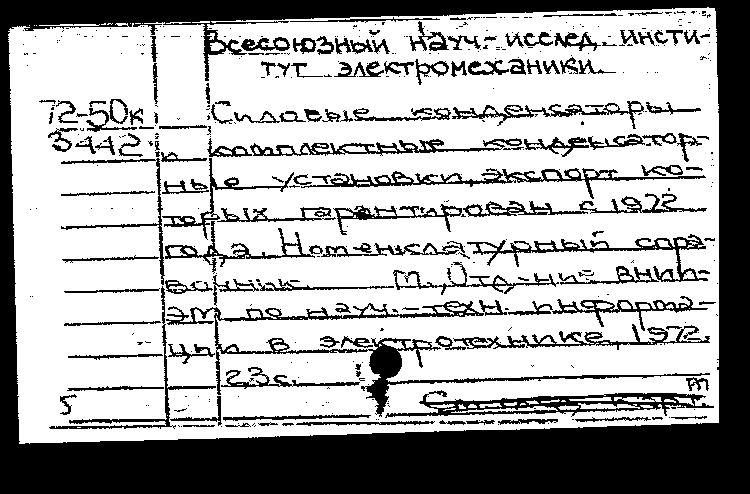 Всесоюзный науч.-исслед. инсти-
тут электромеханики.
72-50к Силовые конденсаторы
5442 и комплектные конденсатор-
ные установки, экспорт ко-
торых гарантирован с 1972
года. Номенклатурный спра-
вочник. М., Отд-ние ВНИИ-
ЭМ по науч.-техн. информа-
ции в электротехнике, 1972.
23 с.
5 См. след. карт. m